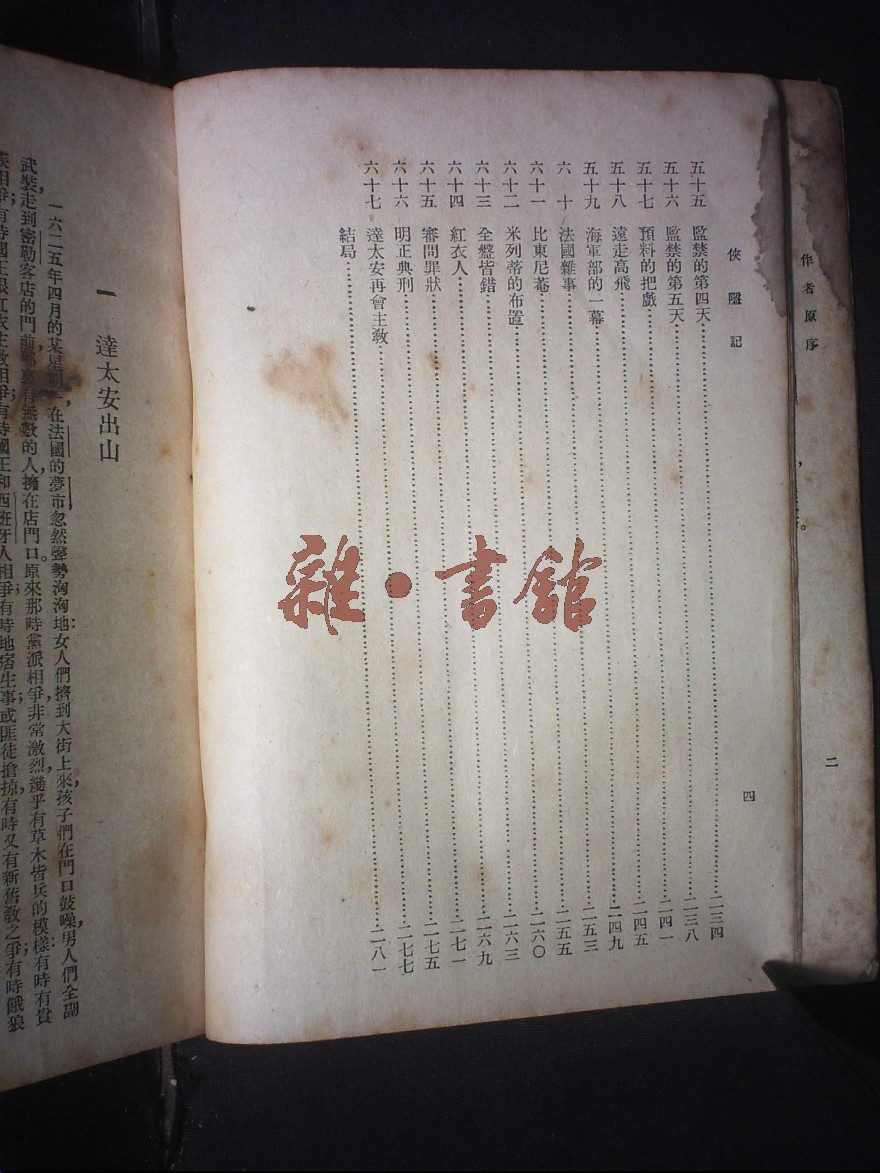 作者原序
二
俠隱記
四
五十五 監禁的第四天……二三四
五十六 監禁的第五天……二三八
五十七 預料的把戲……二四一
五十八 遠走高飛……二四五
五十九 海軍部的一幕……二四九
六十 法國雜事……二五三
六十一 比東尼菴……二五五
六十二 米列蒂的布置……二六〇
六十三 全盤皆錯……二六三
六十四 紅衣人……二六九
六十五 審問罪狀……二七一
六十六 明正典刑……二七五
六十七 達太安再會主教……二七七
結局……二八一
雜·書館
一 達太安出山
一六二五年四月的某星期一，在法國的夢市忽然聲勢洶洶地：女人們擠到大街上來，孩子們在門口鼓噪，男人們全副
武裝，走到密勒客店的門前，那裏有無數的人擁在店門口。原來那時黨派相爭，非常激烈，幾乎有草木皆兵的模樣：有時有貴
族相爭；有時國王跟紅衣主教相爭；有時國王和西班牙人相爭；有時地痞生事，或匪徒搶掠；有時又有新舊教之爭；有時餓狼